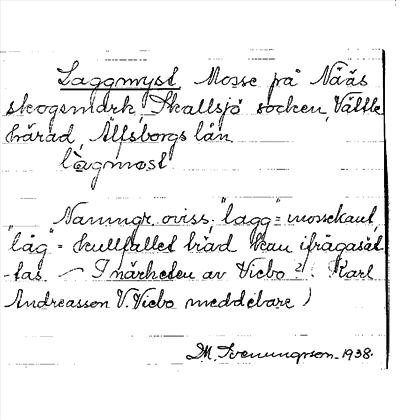 Laggmyst Mosse på Nääs
skogsmark, Skallsjö socken, Vättle
härad, Älfsborgs län.
làgmøst
Namngr. oviss; "lagg" = mossekant,
"låg" = kullfallet träd kan ifrågasät
-tas. — I närheten av Viebo 2/. (Karl
Andreasson V. Viebo meddelare)
M. Svenungsson - 1938.